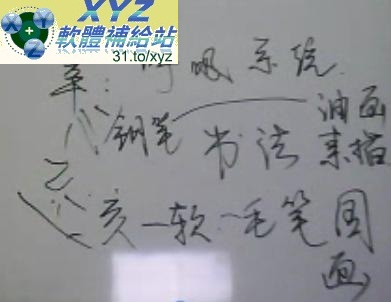 XYZ
軟體補給站
31.to/xyz
辛: 呼吸系统
八 钢笔 书法 油画
素描
乙
亥一软一毛笔 国
画